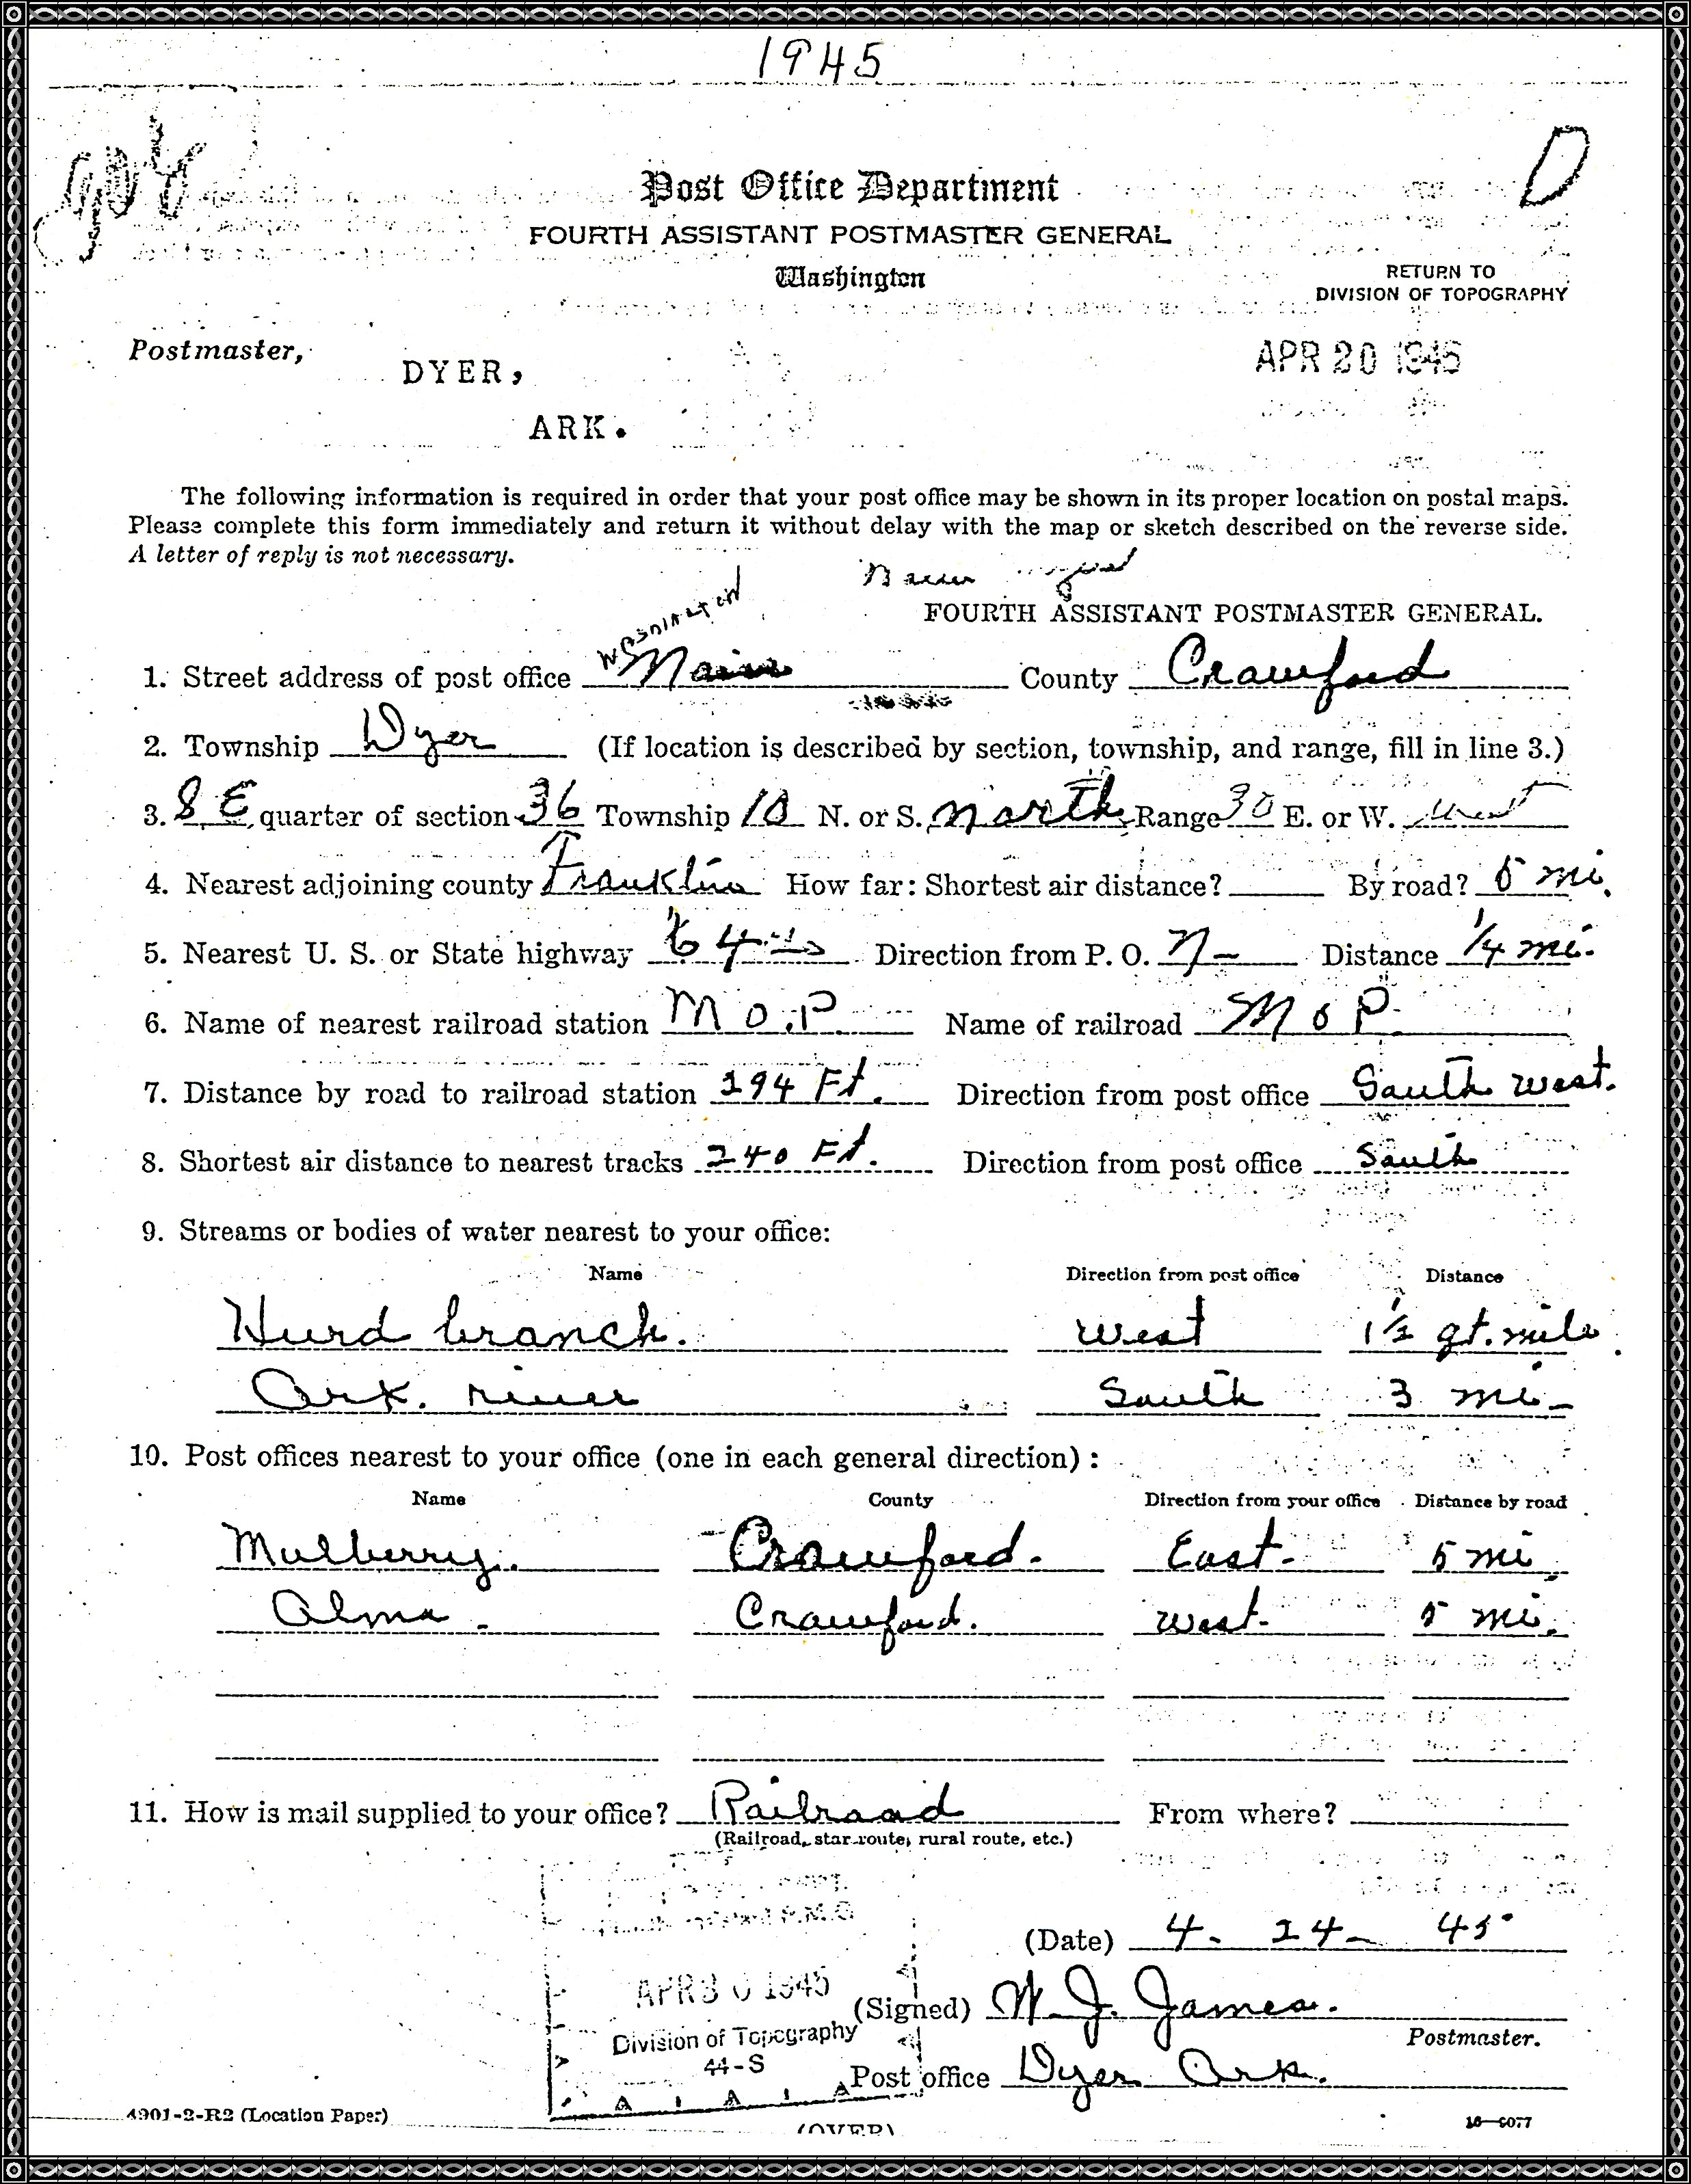 1945
D
Post Office Department
FOURTH ASSISTANT POSTMASTER GENERAL
Washington
RETURN TO
DIVISION OF TOPOGRAPHY
Postmaster,
APR 20 1945
DYER,
ARK.
The following information is required in order that your post office may be shown in its proper location on postal maps.
Please complete this form immediately and return it without delay with the map or sketch described on the reverse side.
A letter of reply is not necessary.
FOURTH ASSISTANT POSTMASTER GENERAL.
1. Street address of post office Main County Crawford
2. Township Dyer (If location is described by section, township, and range, fill in line 3.)
3. S E quarter of section 36 Township 10 N. or S. north Range 30 E. or W. West
4. Nearest adjoining county Franklin How far: Shortest air distance? By road? 5 mi.
5. Nearest U. S. or State highway 64 Direction from P. O. N- Distance 1/4 mi.
6. Name of nearest railroad station M O. P. Name of railroad M O P.
7. Distance by road to railroad station 294 Ft. Direction from post office South west.
8. Shortest air distance to nearest tracks 240 Ft. Direction from post office South
9. Streams or bodies of water nearest to your office:
Name Direction from post office Distance
Hurd branch. West 1½ gt. mile
Ark. river South 3 mi-
10. Post offices nearest to your office (one in each general direction) :
Name County Direction from your office Distance by road
Mulberry. Crawford. East- 5 mi
Alma. Crawford. West- 5 mi.
11. How is mail supplied to your office? Railroad From where?
(Railroad, star route, rural route, etc.)
(Date) 4- 24- 45
APR 30 1945
(Signed) W. J. James.
Division of Topography
Postmaster.
44-S
Post office Dyer Ark.
4901-2-R2 (Location Paper)
(OVER)
16—6077